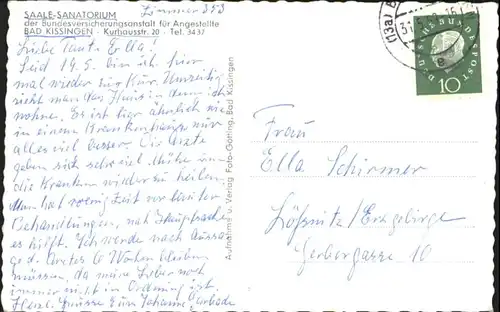 Zimmer 353
SAALE-SANATORIUM
der Bundesversicherungsanstalt für Angestellte
BAD KISSINGEN · Kurhausstr. 20 - Tel. 3437
Liebe Tante Ella!
Seid 19.5. bin ich hier
mal wieder zur Kur. Umseitig
sieht man das Haus in dem ich
wohne. Es ist hier ähnlich wie
in einem Krankenhause nur
alles viel besser. Die Ärzte
geben sich sehr viel Mühe um
die Kranken wieder zu heilen.
Man hat wenig Zeit vor lauter
Behandlungen, na Hauptsache
es hilft. Ich werde nach Aussa-
ge d. Arztes 6 Wochen bleiben
müssen, da meine Leber noch
immer nicht in Ordnung ist.
Herzl. Grüsse Eure Johanna
Aufnahme u. Verlag Foto-Götting, Bad Kissingen
(13a) B
31.5.
DEUTSCHE BUNDESPOST
10
Frau
Ella Schirmer
Lößnitz/Erzgebirge
Gerbergasse 10